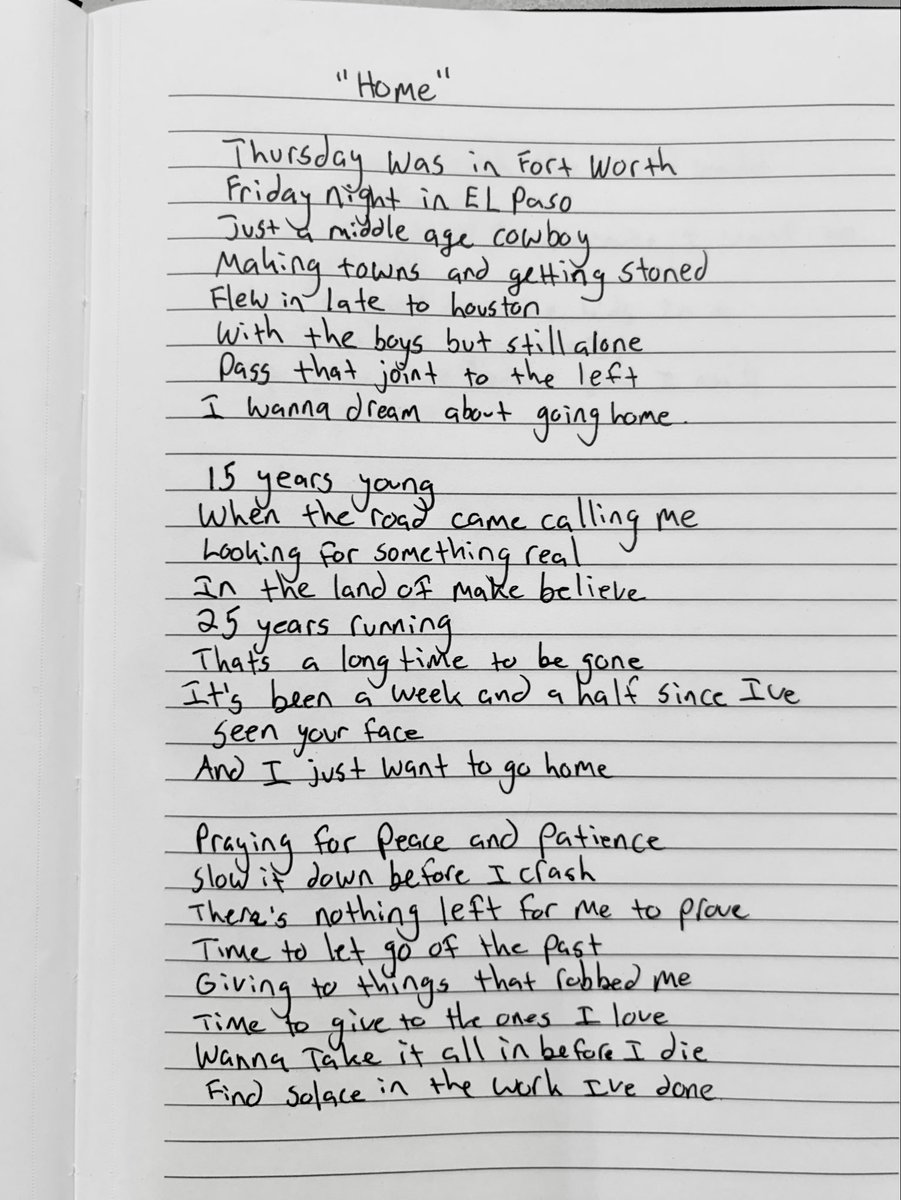 "Home"
Thursday was in Fort Worth
Friday night in EL Paso
Just a middle age cowboy
Making towns and getting stoned
Flew in late to houston
With the boys but still alone
Pass that joint to the left
I wanna dream about going home.
15 years young
When the road came calling me
Looking for something real
In the land of make believe
25 years running
Thats a long time to be gone
It's been a week and a half since Ive
seen your face
And I just want to go home
Praying for peace and patience
Slow it down before I crash
There's nothing left for me to prove
Time to let go of the past
Giving to things that robbed me
Time to give to the ones I love
Wanna Take it all in before I die
Find solace in the work Ive done